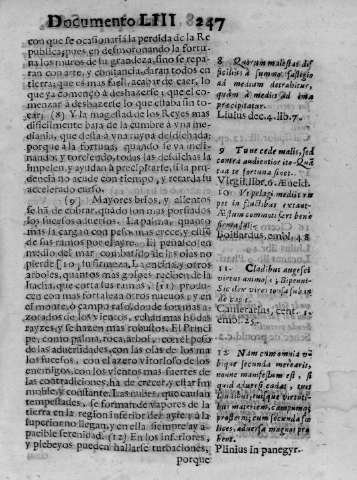 Documento LIII 247
con que se ocasionaria la perdida de la Re
publica, pues en desmoronando la fortu-
na los muros de su grandeza, sino se repa-
ran con arte, y constancia, daran todos en
tierra; que es mas facil, acabar de caer, lo
que ya començò à deshazerse; que el co-
mençar à deshazerse lo que estaba sin to-
car, (8) Y la magestad de los Reyes mas
dificilmente baja de la cumbre à vna me-
diania, que desta à vna rayna desdichada;
porque à la fortuna, quando se va incli-
nando, y torciendo, todas las desdichas la
impelen, y ayudan à precipitarse, si la pru-
dencia no acude con tiempo, y retarda su
acelerado curso.
(9) Mayores brios, y alientos
se hã de cobrar, quando son mas porfiados
los sucesos adversos. La palma, quanto
mas la cargan con peso mas crece, y
de sus ramos
El peñasco en
medio del mar combatido de las olas no
pierde (10) su firmeza, La encina, y otros
arboles, quantos mas golpes reciben de la
hacha, que corta sus ramas, (11) produ-
cen con mas fortaleza otros nuevos; y en
el monte, ò campo raso, donde son mas a-
zotados de los vientos, echan mas hõdas
rayzes, y se hazen mas robustos. El Princi
pe, como palma, roca, arbol, con el peso
de las adversidades, con las olas de los ma
los sucesos, con el azero vitorioso de los
enemigos, con los vientos mas fuertes de
las contradiciones, hà de crecer, y estar fir
me, y constante. Las nubes, que causan
tempestades, se forman de vapores de la
tierra en la region inferior del ayre; à la
superior no llegan, y en ella siempre ay a-
pacible serenidad. (12) En los inferiores,
y plebeyos pueden hallarse turbaciones,
porque
8 Quorum maiestas dif
ficilius à summo fastigio
ad medium detrahitur,
quàm à mediis ad ima
precipitatur.
Liuius dec. 4. lib. 7.
9 Tunc cede malis, sed
contra audentior ito Quã
tua te fortuna sinet.
Virgil. lib. 6. Æneid.
10 Vt pelagi medio
pes in fluctibus extat
firma
Boissardus, embl. 48
11 Cladibus augesci
virtus animosa; Bipenni-
Camerarius, cent. 1.
12 Nam cum omnia v
bique secunda
nunc manifestum est, si
quid adversi cadat, tuis
secun
dis, adversa magnis pra
bent.
Plinius in panegyr.